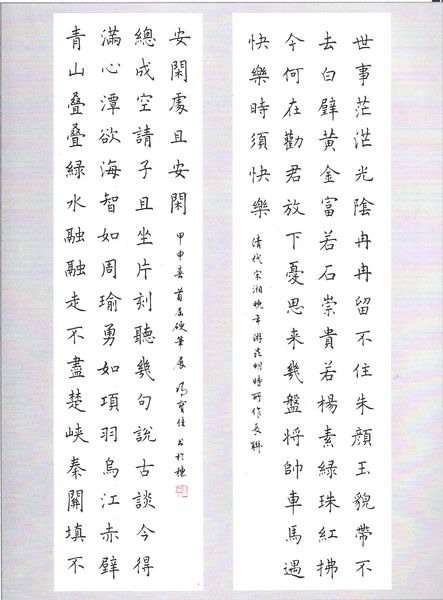 世事茫茫光陰冉冉留不住朱顏玉貌帶不
去白璧黃金富若石崇貴若楊素綠珠紅拂
今何在勸君放下憂思来幾盤將帥車馬遇
快樂時須快樂
清代宋湘晚年游州時所作長聯
青山叠叠綠水融融走不盡楚峽秦關填不
滿心潭欲海智如周瑜勇如項羽烏江赤壁
總成空請子且坐片刻聽幾句說古談今得
安閑處且安閑
甲申春首届硬筆展馮寶佳書於穗